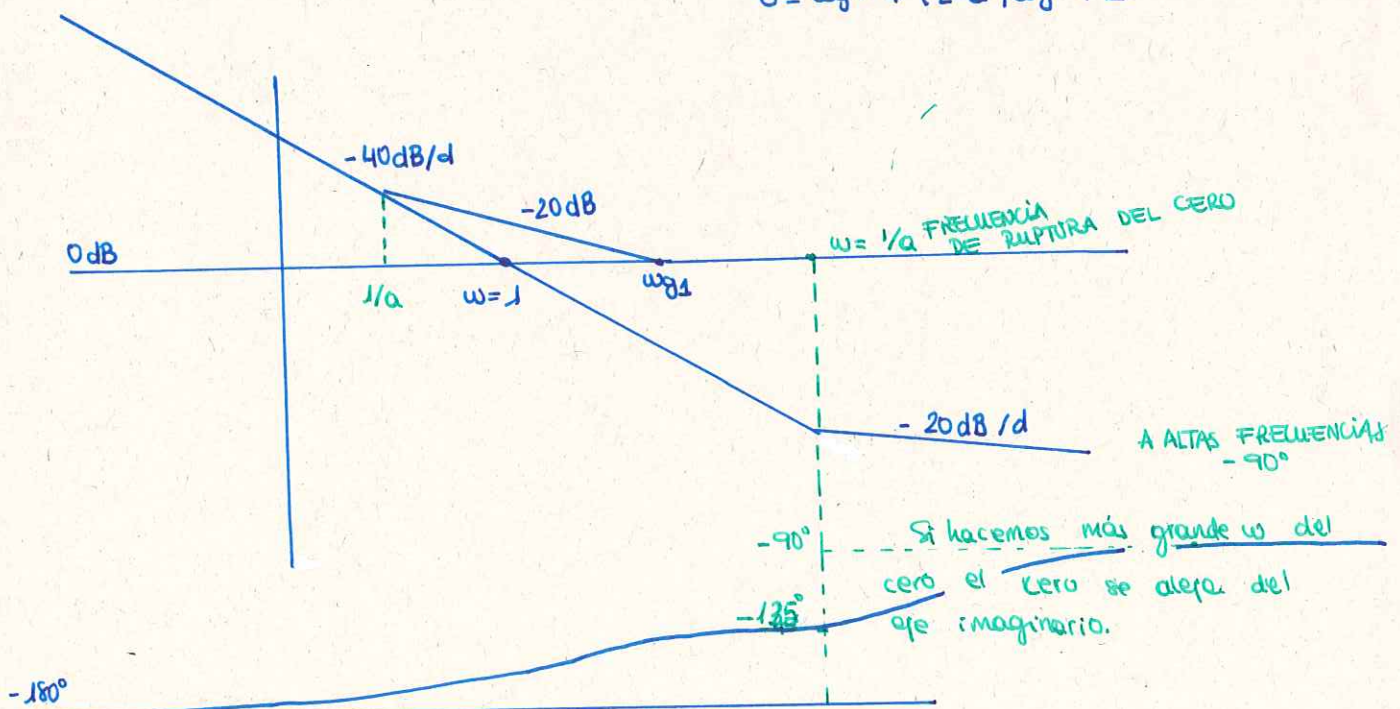 -40dB/d
-20dB
ω= 1/a FRECUENCIA
DE RUPTURA DEL CERO
0dB
1/a
ω=1
ωg1
- 20dB/d
A ALTAS FRECUENCIAS
-90°
-90°
Si hacemos más grande ω del
cero el cero se aleja del
eje imaginario.
-135°
-180°